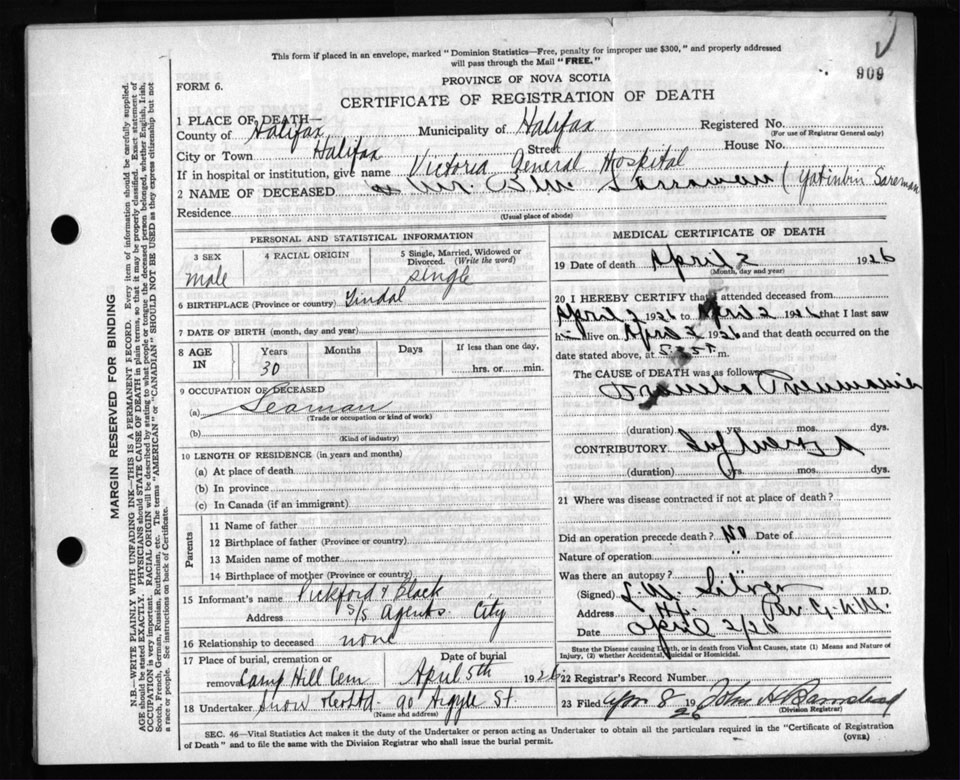 This form if placed in an envelope, marked "Dominion Statistics—Free, penalty for improper use $300," and properly addressed
will pass through the Mail "FREE."
909
FORM 6.
PROVINCE OF NOVA SCOTIA
CERTIFICATE OF REGISTRATION OF DEATH
MARGIN RESERVED FOR BINDING
N.B.—WRITE PLAINLY WITH UNFADING INK—THIS IS A PERMANENT RECORD. Every item of information should be carefully supplied.
AGE should be stated EXACTLY. PHYSICIANS should STATE CAUSE OF DEATH in plain terms, so that it may be properly classified. Exact statement of
OCCUPATION is very important. RACIAL ORIGIN will be described by stating to what people or tongue the deceased person belonged, whether English, Irish,
Scotch, French, German, Russian, Ruthenian, etc. The terms "AMERICAN" or "CANADIAN" SHOULD NOT BE USED as they express citizenship but not
a race or people. See instructions on back of Certificate.
1 PLACE OF DEATH—
County of Halifax Municipality of Halifax Registered No.
(For use of Registrar General only)
City or Town Halifax Street House No.
If in hospital or institution, give name Victoria General Hospital
2 NAME OF DECEASED (Yatinbin Sareman
Residence
(Usual place of abode)
PERSONAL AND STATISTICAL INFORMATION
3 SEX 4 RACIAL ORIGIN 5 Single, Married, Widowed or
Divorced. (Write the word)
male single
6 BIRTHPLACE (Province or country) Tindal
7 DATE OF BIRTH (month, day and year)
8 AGE IN Years Months Days If less than one day,
30 hrs. or min.
9 OCCUPATION OF DECEASED
(a) Seaman
(Trade or occupation or kind of work)
(b)
(Kind of industry)
10 LENGTH OF RESIDENCE (in years and months)
(a) At place of death
(b) In province
(c) In Canada (if an immigrant)
Parents
11 Name of father
12 Birthplace of father (Province or country)
13 Maiden name of mother
14 Birthplace of mother (Province or country)
15 Informant's name Pickford & Black
Address S/S Agents. City
16 Relationship to deceased none
17 Place of burial, cremation or Date of burial
removal Camp Hill Cem April 5th 1926
18 Undertaker Snow & Co Ltd 90 Argyle St.
(Name and address)
MEDICAL CERTIFICATE OF DEATH
19 Date of death April 2 1926
(Month, day and year)
20 I HEREBY CERTIFY that I attended deceased from
April 2 1926 to April 2 1926 that I last saw
him alive on April 2 1926 and that death occurred on the
date stated above, at m.
The CAUSE of DEATH was as follows
Broncho Pneumonia
(duration) yrs. mos. dys.
CONTRIBUTORY Influenza
(duration) yrs. mos. dys.
21 Where was disease contracted if not at place of death?
Did an operation precede death? No Date of
Nature of operation "
Was there an autopsy?
(Signed) Silver M.D.
Address
Date April 2/26
State the Disease causing Death, or in death from Violent Causes, state (1) Means and Nature of
Injury, (2) whether Accidental, Suicidal or Homicidal.
22 Registrar's Record Number
23 Filed Apr 8 1926 John H Barnstead
(Division Registrar)
SEC. 46—Vital Statistics Act makes it the duty of the Undertaker or person acting as Undertaker to obtain all the particulars required in the "Certificate of Registration
of Death" and to file the same with the Division Registrar who shall issue the burial permit.
(OVER)